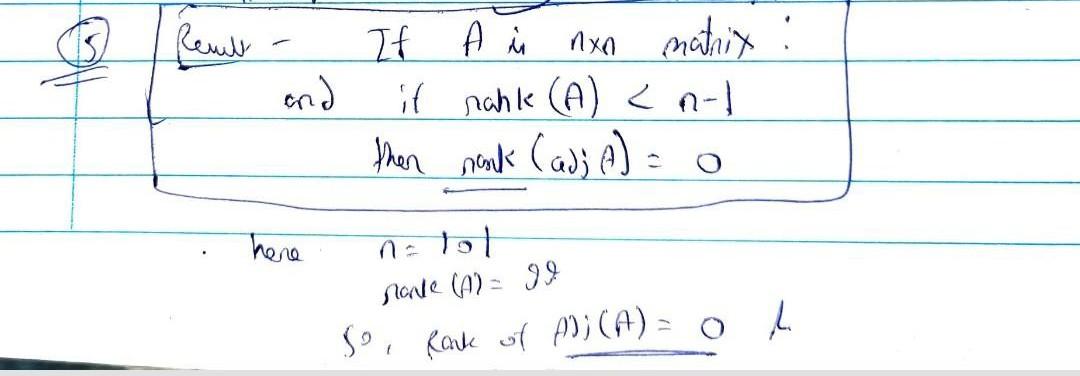 5 Result - If A is nxn matrix :
and if rank (A) < n-1
then rank (adj A) = 0
here n = 101
rank (A) = 99
So, Rank of Adj (A) = 0